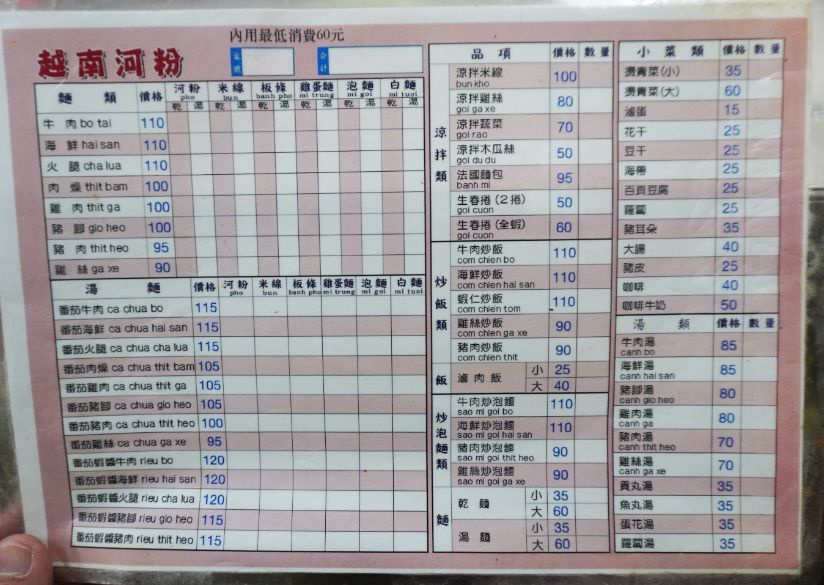 內用最低消費60元
越南河粉
桌號
合計
麵 類 價格 河粉 米線 板條 雞蛋麵 泡麵 白麵
pho bun banh pho mi trung mi goi mi tuoi
乾 湯 乾 湯 乾 湯 乾 湯 乾 湯 乾 湯
牛 肉 bo tai 110
海 鮮 hai san 110
火 腿 cha lua 110
肉 燥 thit bam 100
雞 肉 thit ga 100
豬 腳 gio heo 100
豬 肉 thit heo 95
雞 絲 ga xe 90
湯 麵 價格 河粉 米線 板條 雞蛋麵 泡麵 白麵
pho bun banh pho mi trung mi goi mi tuoi
番茄牛肉 ca chua bo 115
番茄海鮮 ca chua hai san 115
番茄火腿 ca chua cha lua 115
番茄肉燥 ca chua thit bam 105
番茄雞肉 ca chua thit ga 105
番茄豬腳 ca chua gio heo 105
番茄豬肉 ca chua thit heo 100
番茄雞絲 ca chua ga xe 95
番茄蝦醬牛肉 rieu bo 120
番茄蝦醬海鮮 rieu hai san 120
番茄蝦醬火腿 rieu cha lua 120
番茄蝦醬豬腳 rieu gio heo 115
番茄蝦醬豬肉 rieu thit heo 115
品 項 價格 數量
涼拌類
涼拌米線 100
bun kho
涼拌雞絲 80
goi ga xe
涼拌蔬菜 70
goi rao
涼拌木瓜絲 50
goi du du
法國麵包 95
banh mi
生春捲(2捲) 50
goi cuon
生春捲(全蝦) 60
goi cuon
炒飯類
牛肉炒飯 110
com chien bo
海鮮炒飯 110
com chien hai san
蝦仁炒飯 110
com chien tom
雞絲炒飯 90
com chien ga xe
豬肉炒飯 90
com chien thit
飯
滷肉飯 小 25
大 40
炒泡麵類
牛肉炒泡麵 110
sao mi goi bo
海鮮炒泡麵 110
sao mi goi hai san
豬肉炒泡麵 90
sao mi goi thit heo
雞絲炒泡麵 90
sao mi goi ga xe
麵
乾 麵 小 35
大 60
湯 麵 小 35
大 60
小 菜 類 價格 數量
燙青菜(小) 35
燙青菜(大) 60
滷蛋 15
花干 25
豆干 25
海帶 25
百頁豆腐 25
蘿蔔 25
豬耳朵 35
大腸 40
豬皮 25
咖啡 40
咖啡牛奶 50
湯 類 價格 數量
牛肉湯 85
canh bo
海鮮湯 85
canh hai san
豬腳湯 80
canh gio heo
雞肉湯 80
canh ga
豬肉湯 70
canh thit heo
雞絲湯 70
canh ga xe
貢丸湯 35
魚丸湯 35
蛋花湯 35
蘿蔔湯 35